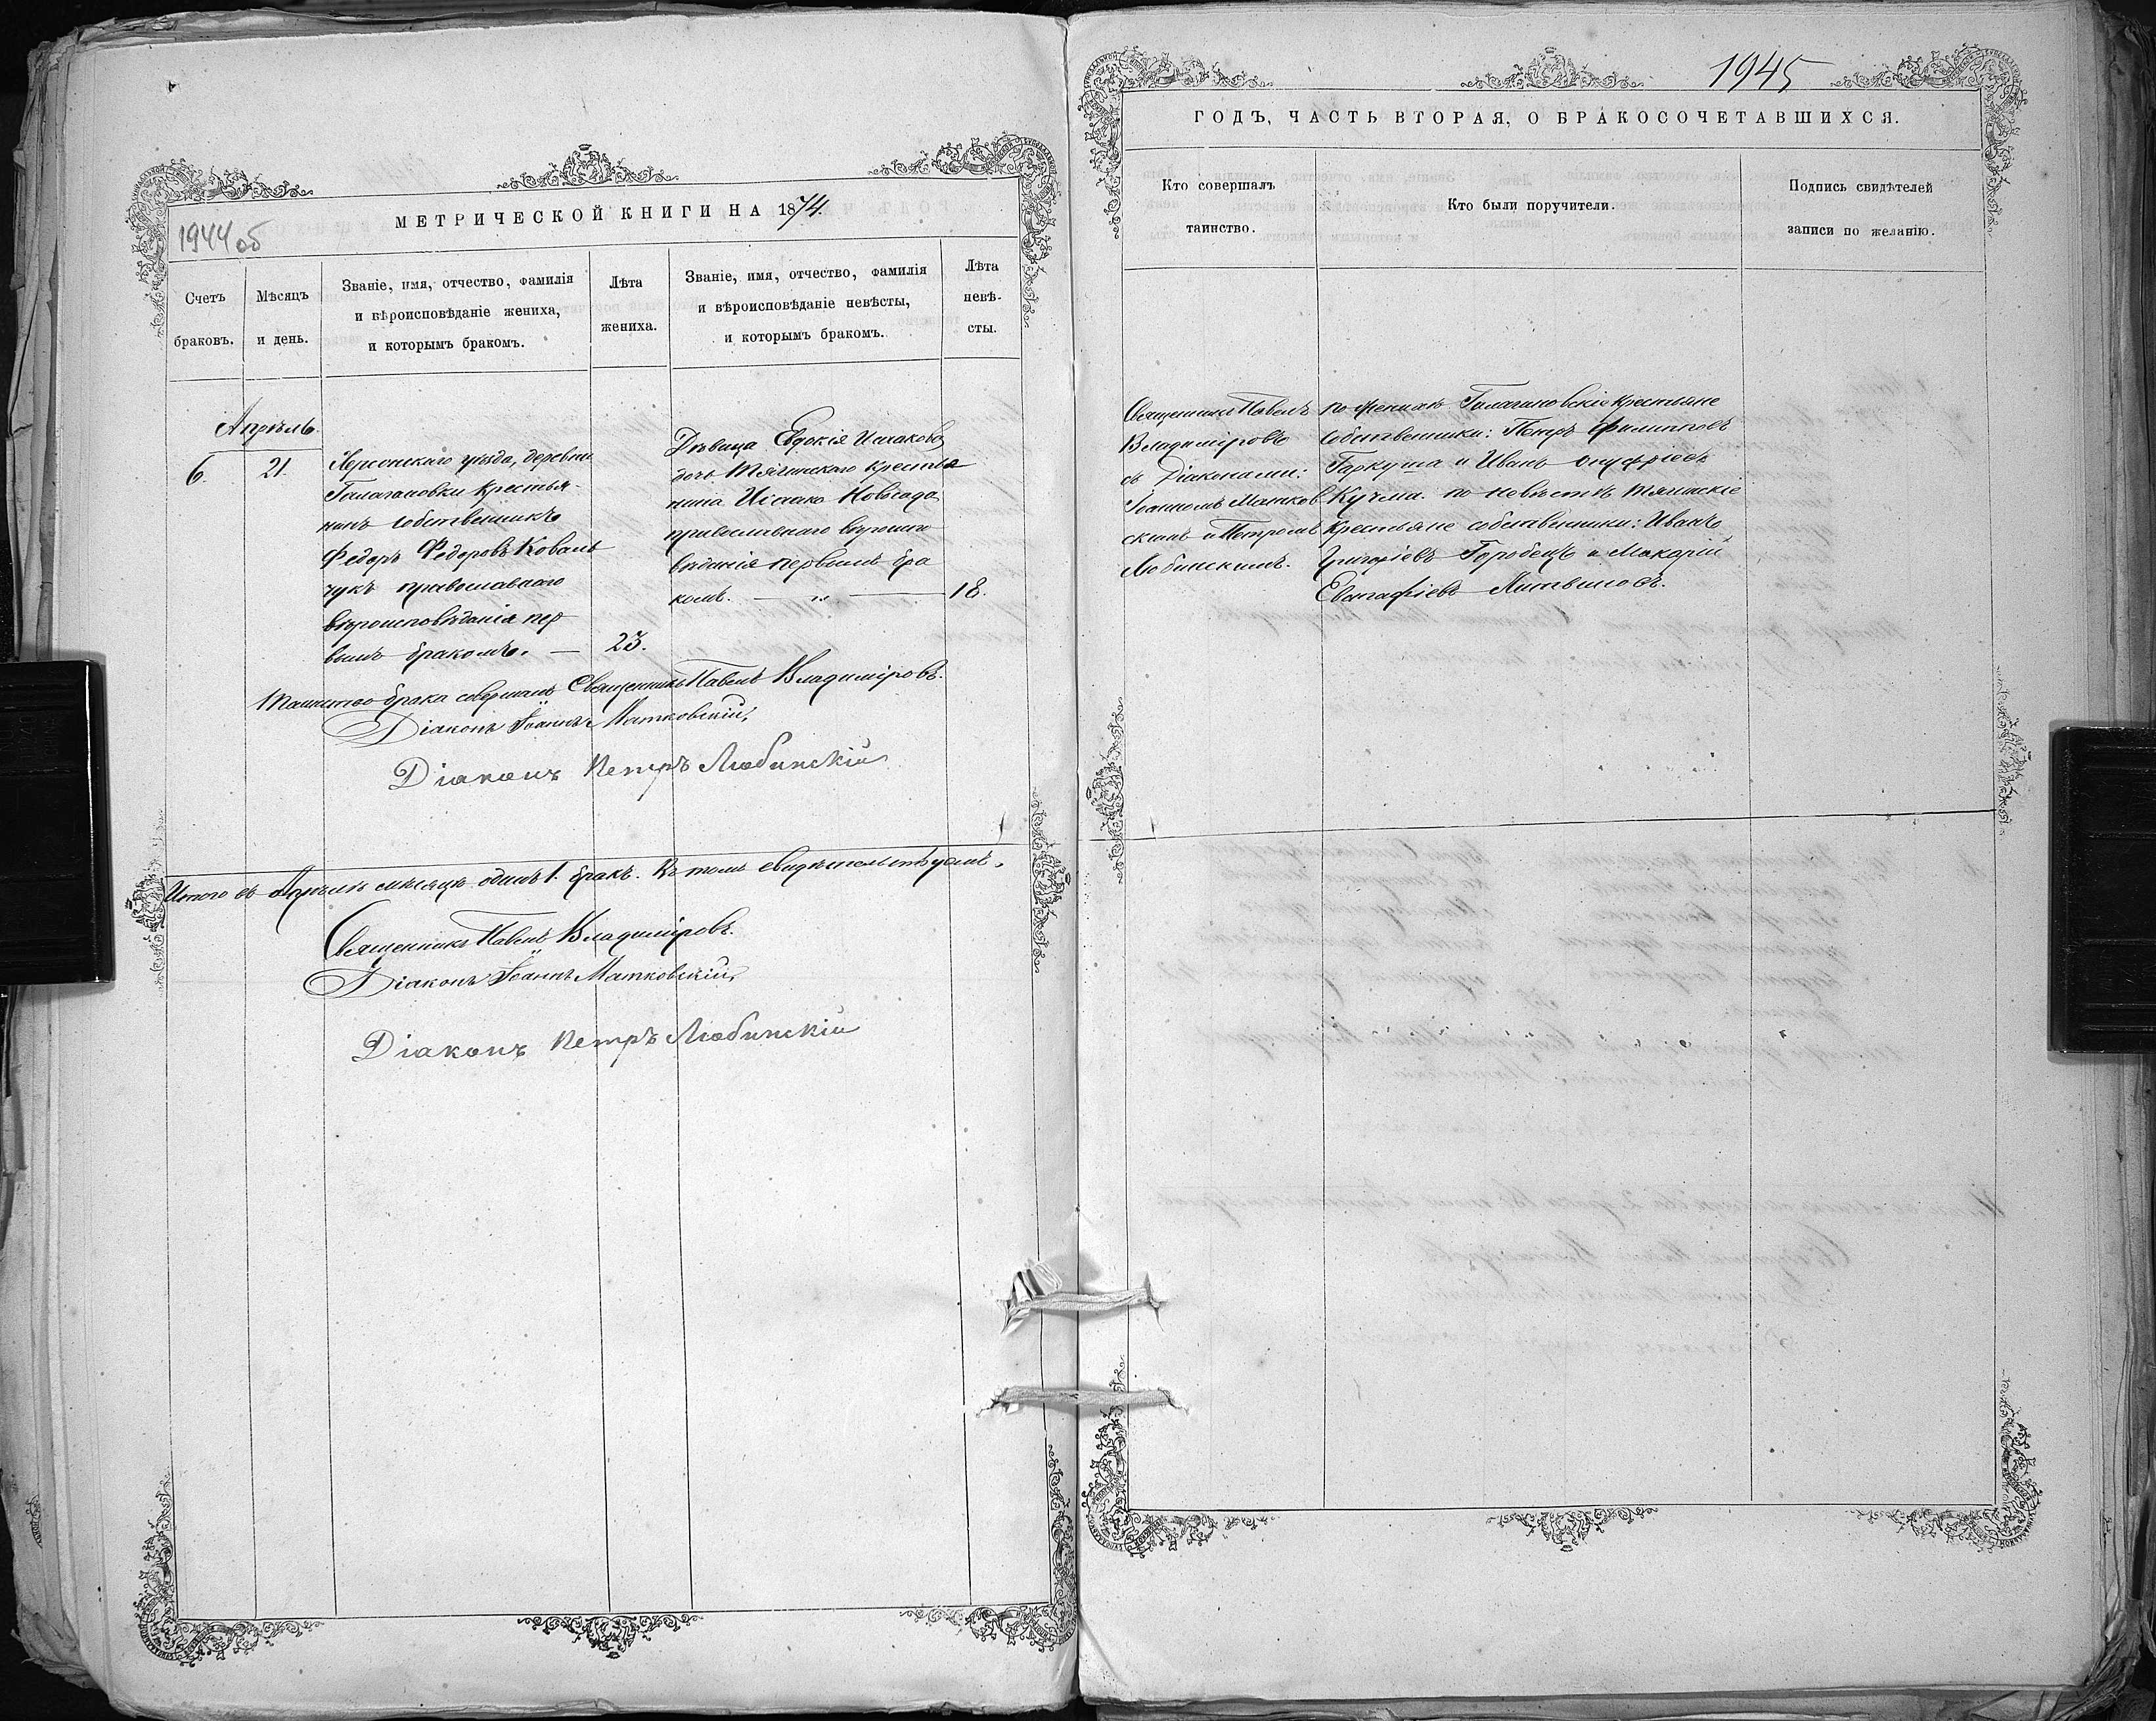 1944 об
МЕТРИЧЕСКОЙ КНИГИ НА 1874.
Счетъ
браковъ.
Мѣсяцъ
и день.
Званіе, имя, отчество, фамилія
и вѣроисповѣданіе жениха,
и которымъ бракомъ.
Лѣта
жениха.
Званіе, имя, отчество, фамилія
и вѣроисповѣданіе невѣсты,
и которымъ бракомъ.
Лѣта
невѣ-
сты.
Апрѣль.
6.
21.
Херсонскаго уѣзда, деревни
Галагановки крестья-
нинъ собственникъ
Федоръ Федоровъ Коваль
чукъ православнаго
вѣроисповѣданія пер
вымъ бракомъ. —
23.
Дѣвица Евдокія Исаакова,
дочь Тягинскаго крестья
нина Исаака
православнаго вѣроиспо
вѣданія первымъ бра
комъ. — „ —
18.
Таинство брака совершалъ Священникъ Павелъ Владиміровъ.
Діаконъ Іоаннъ Матковскій,
Діаконъ Петръ Любинскій
Итого въ Апрѣлѣ мѣсяцѣ одинъ 1. бракъ. Въ томъ свидѣтельствуемъ,
Священникъ Павелъ Владиміровъ.
Діаконъ Іоаннъ Матковскій,
Діаконъ Петръ Любинскій
1945
ГОДЪ, ЧАСТЬ ВТОРАЯ, О БРАКОСОЧЕТАВШИХСЯ.
Кто совершалъ
таинство.
Кто были поручители.
Подпись свидѣтелей
записи по желанію.
Священникъ Павелъ
Владиміровъ
съ Діаконами:
Іоанномъ Матков
скимъ и Петромъ
Любинскимъ.
по женихѣ Галагановскіе крестьяне
собственники: Петръ Филипповъ
Гаркуша и Иванъ Онуфріевъ
Кучма. по невѣстѣ Тягинскіе
крестьяне собственники: Иванъ
Григоріевъ Горобецъ и Макарій
Евстафіевъ Литвиновъ.